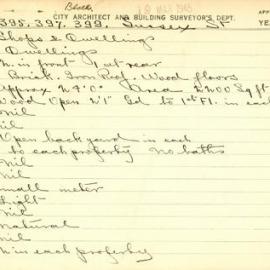 Block
18 MAR 1945
CITY ARCHITECT AND BUILDING SURVEYOR'S DEPT.
395, 397, 399, Sussex St
YE
Shops & Dwellings
Dwellings
in front 1 at rear
Brick. Iron Roof. Wood floors
Approx Area 2200 Sq ft
Wood Open Gd to 1st Fl. in each
Nil
Nil
Open back yard in each
to each property No baths
Nil
Nil
Small meter
Light
Nil
Natural
Nil
in each property